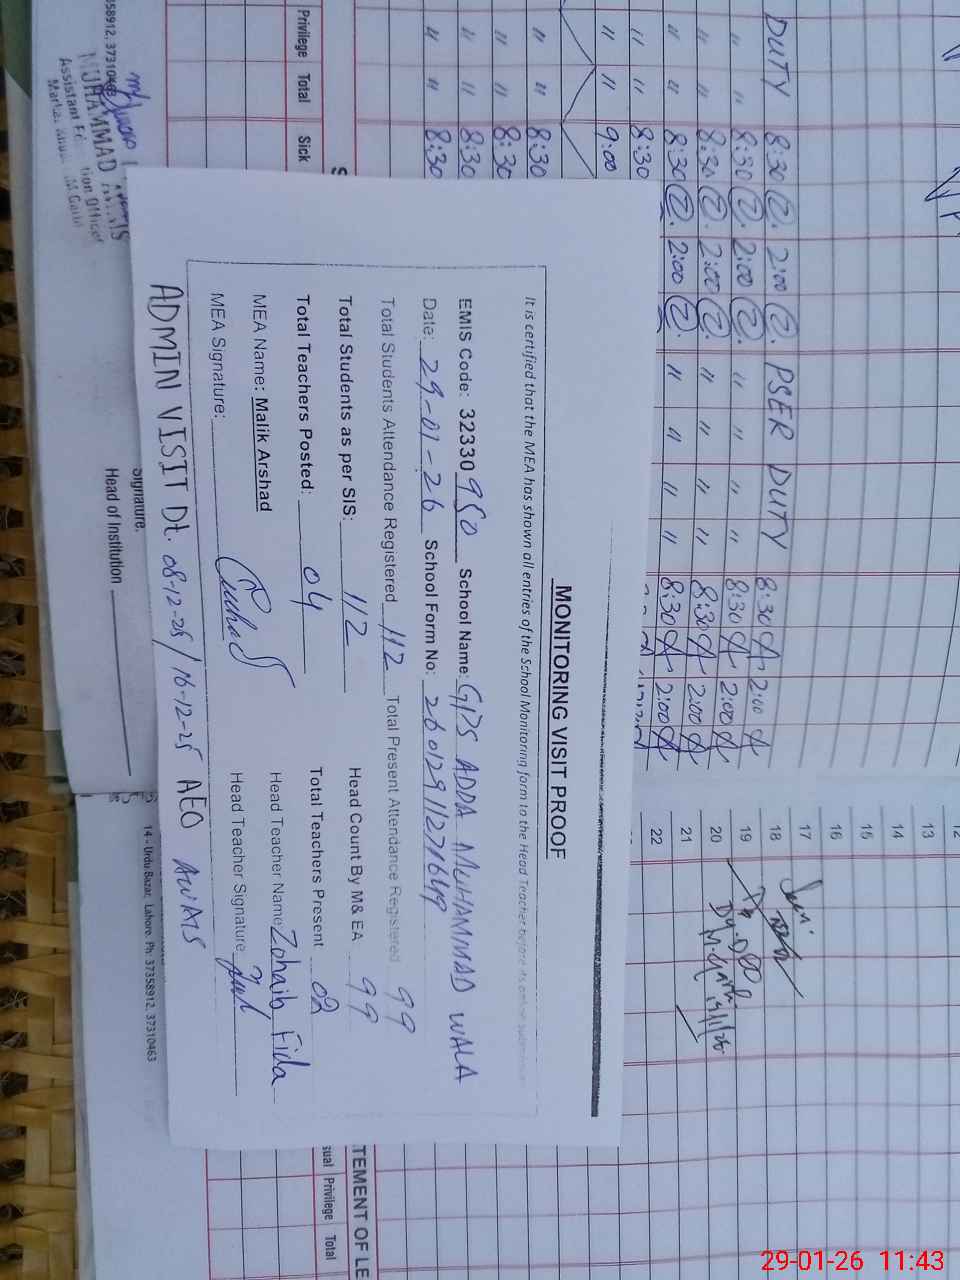 MONITORING VISIT PROOF
It is certified that the MEA has shown all entries of the School Monitoring form to the Head Teacher before its online submission
EMIS Code: 32330950 School Name: GPS ADDA MUHAMMAD WALA
Date: 29-01-26 School Form No: 260129112716419
Total Students Attendance Registered 112 Total Present Attendance Registered 99
Total Students as per SIS: 112 Head Count By M& EA 99
Total Teachers Posted: 04 Total Teachers Present 02
MEA Name: Malik Arshad Head Teacher Name Zohaib Fida
MEA Signature: Head Teacher Signature
ADMIN VISIT Dt. 08-12-25/16-12-25 AEO AWAIS
DUTY 8:30 2:00 PSER DUTY 8:30 2:00
" " 8:30 2:00 " " 8:30 2:00
" " 8:30 2:00 " " " 8:30 2:00
" " 8:30 2:00 " " " " 8:30 2:00
" " 8:30
" " 9:00
" " 8:30
" " 8:30
" " 8:30
" " 8:30
Privilege Total Sick
12
13
14
15
16
17
18
19
20
21
22
Signature.
Head of Institution
58912, 3731046
MUHAMMAD
Assistant
14 - Urdu Bazar, Lahore. Ph: 37358912, 37310463
TEMENT OF LE
sual Privilege Total
29-01-26 11:43